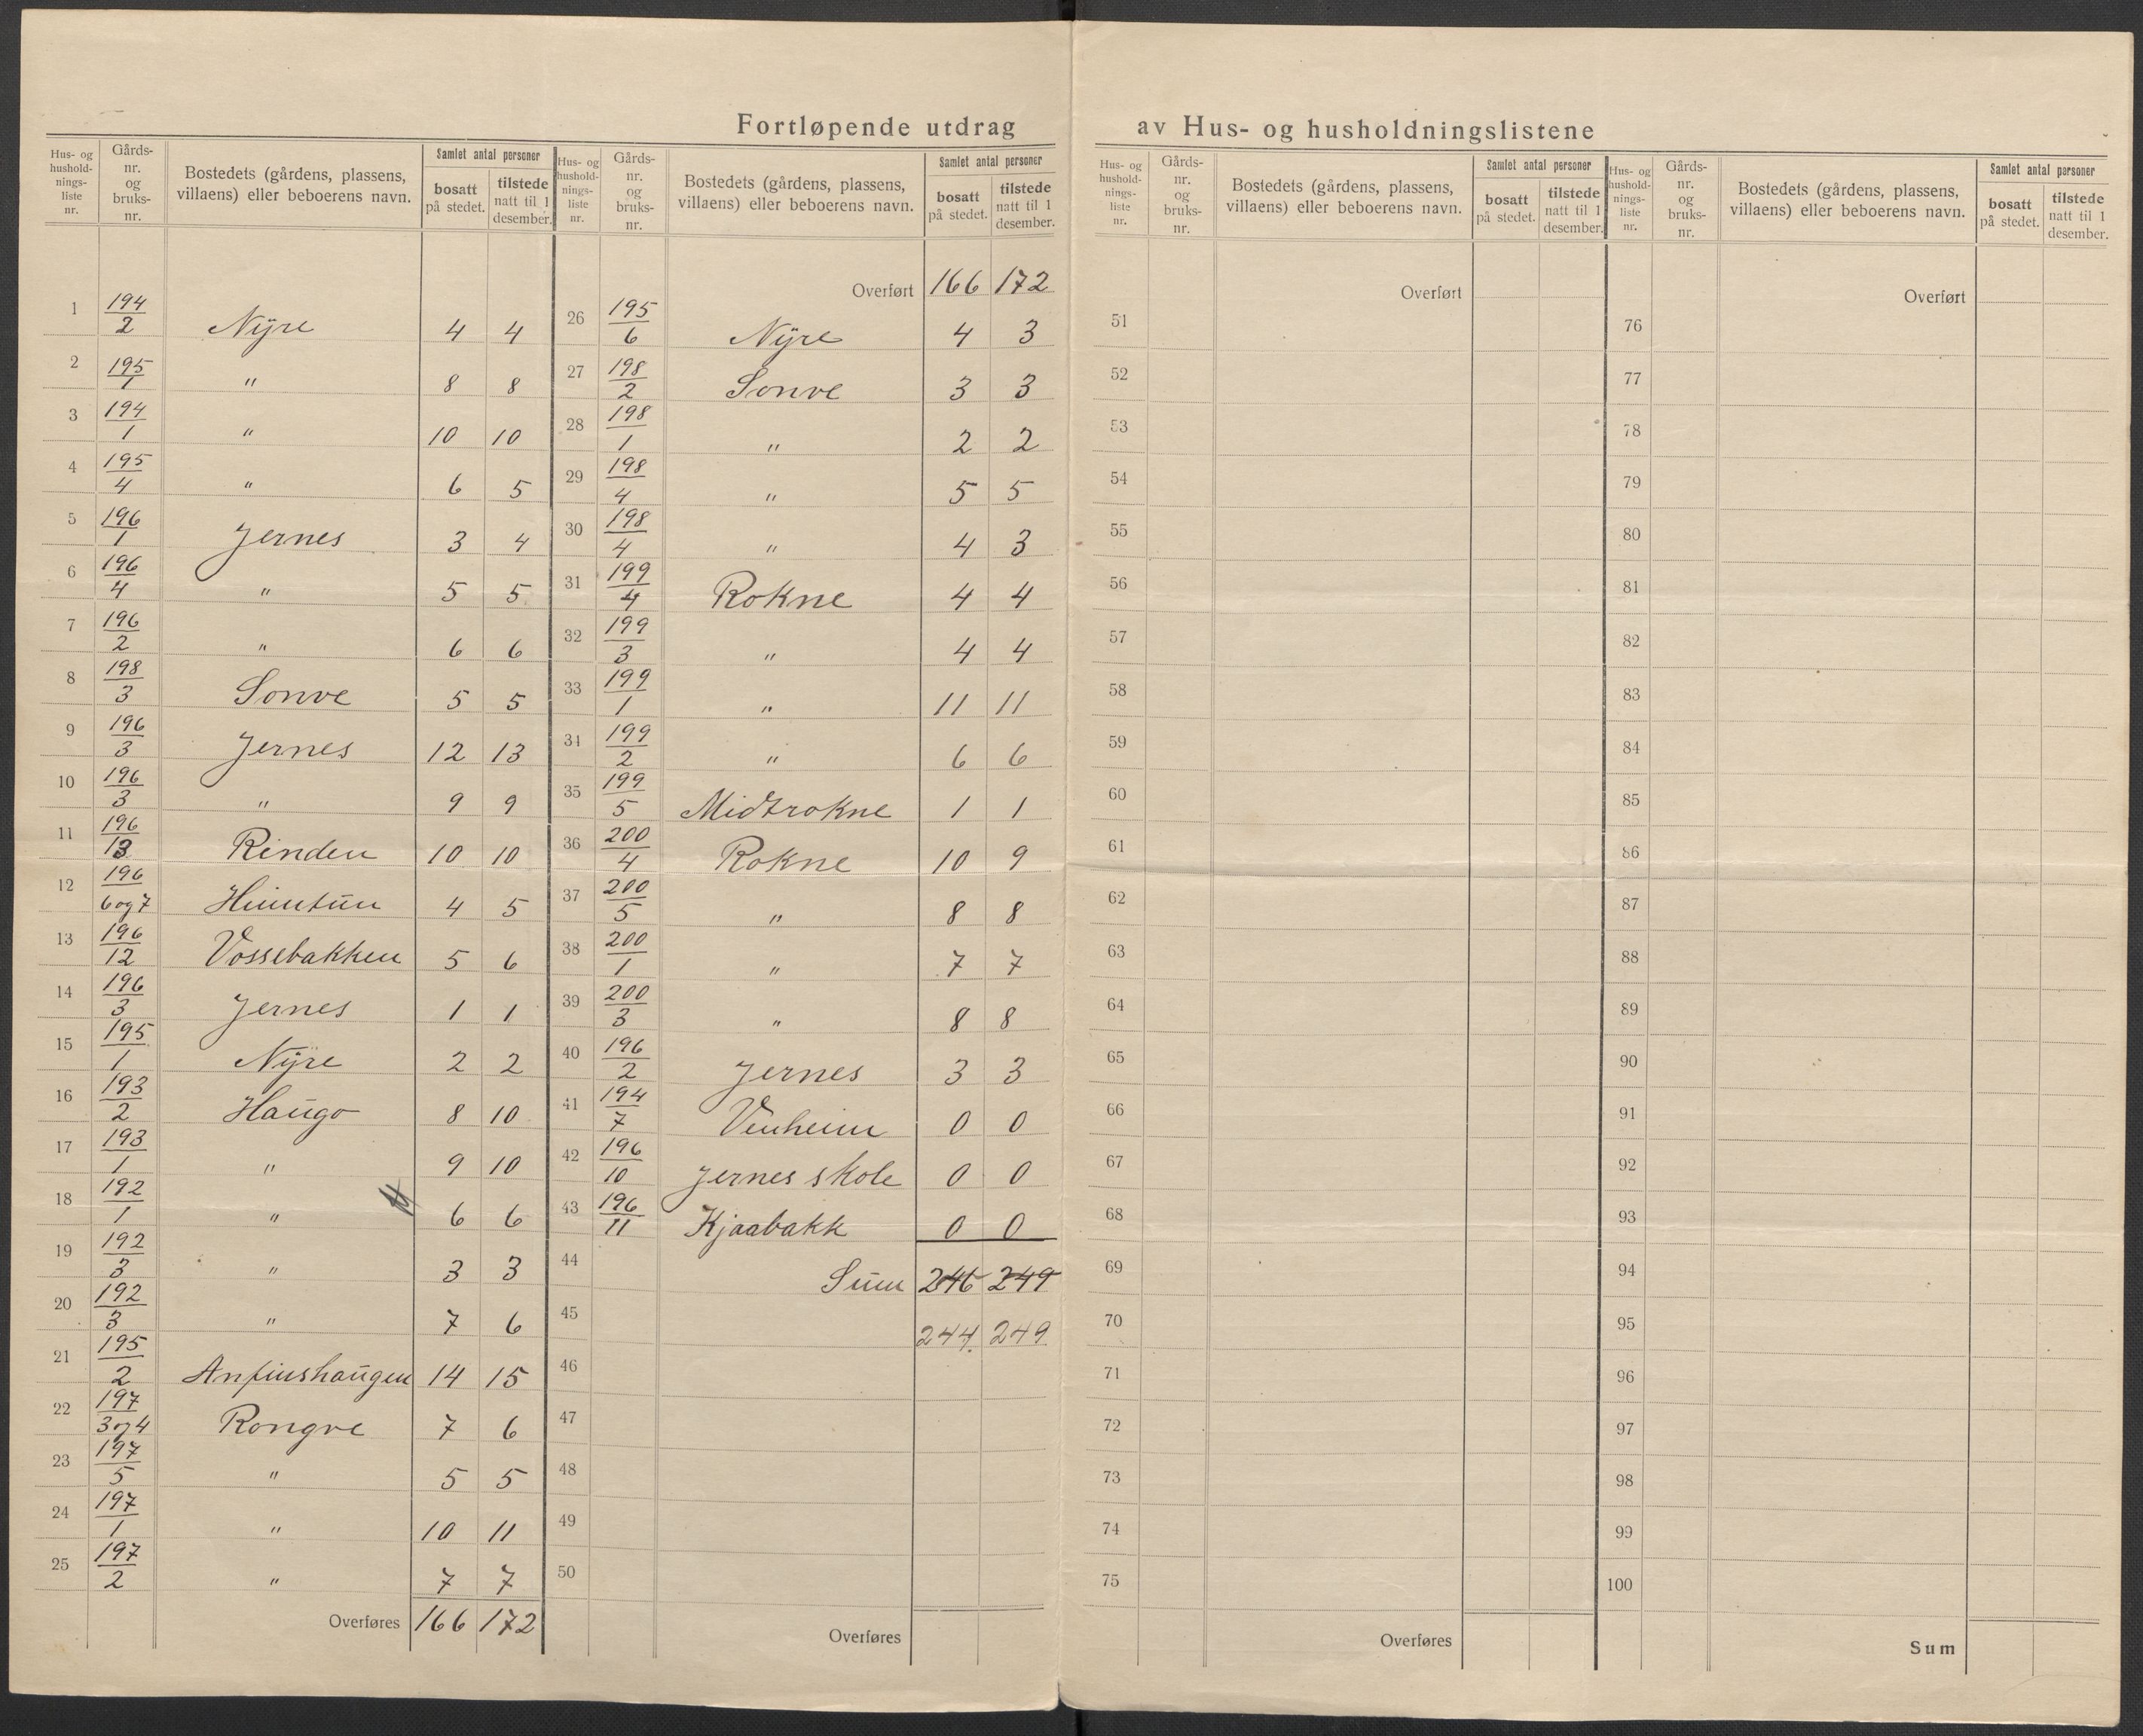 Fortløpende utdrag av Hus- og husholdningslistene
Hus- og hushold-nings-liste nr. | Gårds-nr. og bruks-nr. | Bostedets (gårdens, plassens, villaens) eller beboerens navn. | Samlet antal personer | bosatt på stedet. | tilstede natt til 1 desember.
1 194/2 Nÿre 4 4
2 195/1 " 8 8
3 194/1 " 10 10
4 195/4 " 6 5
5 196/1 Jernes 3 4
6 196/4 " 5 5
7 196/2 " 6 6
8 198/3 Sonve 5 5
9 196/3 Jernes 12 13
10 196/3 " 9 9
11 196/13 Rinden 10 10
12 196/6og7 Heimtun 4 5
13 196/12 Vossebakken 5 6
14 196/3 Jernes 1 1
15 195/1 Nÿre 2 2
16 193/2 Haugo 8 10
17 193/1 " 9 10
18 192/1 " 6 6
19 192/3 " 3 3
20 192/3 " 7 6
21 195/2 Anfinshaugen 14 15
22 197/3og4 Rongve 7 6
23 197/5 " 5 5
24 197/1 " 10 11
25 197/2 " 7 7
Overføres 166 172
Hus- og hushold-nings-liste nr. | Gårds-nr. og bruks-nr. | Bostedets (gårdens, plassens, villaens) eller beboerens navn. | Samlet antal personer | bosatt på stedet. | tilstede natt til 1 desember.
Overført 166 172
26 195/6 Nÿre 4 3
27 198/2 Sonve 3 3
28 198/1 " 2 2
29 198/4 " 5 5
30 198/4 " 4 3
31 199/4 Rokne 4 4
32 199/3 " 4 4
33 199/1 " 11 11
34 199/2 " 6 6
35 199/5 Midtrokne 1 1
36 200/4 Rokne 10 9
37 200/5 " 8 8
38 200/1 " 7 7
39 200/3 " 8 8
40 196/2 Jernes 3 3
41 194/7 Venheim 0 0
42 196/10 Jernes skole 0 0
43 196/11 Kjaabakk 0 0
44 Sum 246 249
45 244. 249.
46
47
48
49
50
Overføres
Hus- og hushold-nings-liste nr. | Gårds-nr. og bruks-nr. | Bostedets (gårdens, plassens, villaens) eller beboerens navn. | Samlet antal personer | bosatt på stedet. | tilstede natt til 1 desember.
Overført
51
52
53
54
55
56
57
58
59
60
61
62
63
64
65
66
67
68
69
70
71
72
73
74
75
Overføres
Hus- og hushold-nings-liste nr. | Gårds-nr. og bruks-nr. | Bostedets (gårdens, plassens, villaens) eller beboerens navn. | Samlet antal personer | bosatt på stedet. | tilstede natt til 1 desember.
Overført
76
77
78
79
80
81
82
83
84
85
86
87
88
89
90
91
92
93
94
95
96
97
98
99
100
Sum